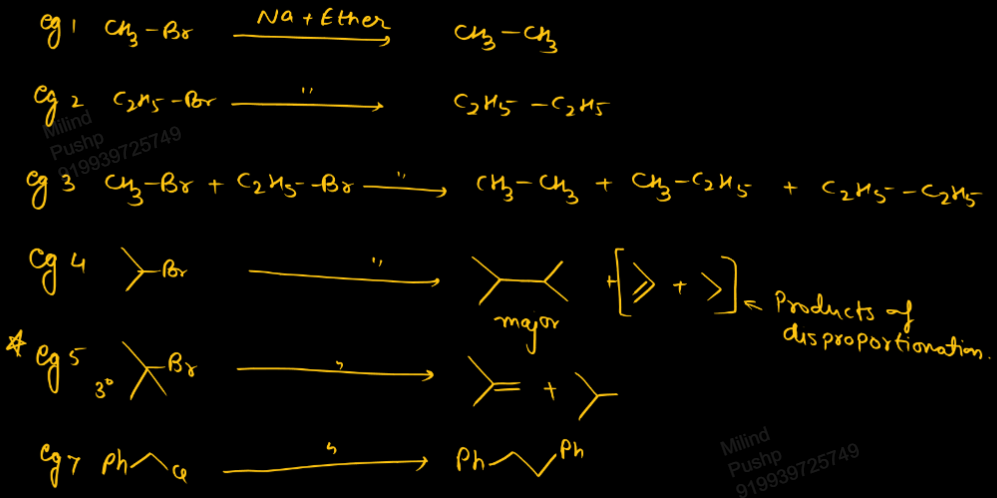 eg 1 CH3-Br Na + Ether CH3-CH3
eg 2 C2H5-Br " C2H5-C2H5
Milind
Pushp
919939725749
eg 3 CH3-Br + C2H5-Br " CH3-CH3 + CH3-C2H5 + C2H5-C2H5
eg 4 Br " + [ + ]
major
Products of
disproportionation.
eg 5 3° Br " +
eg 7 Ph Cl " Ph Ph
Milind
Pushp
919939725749